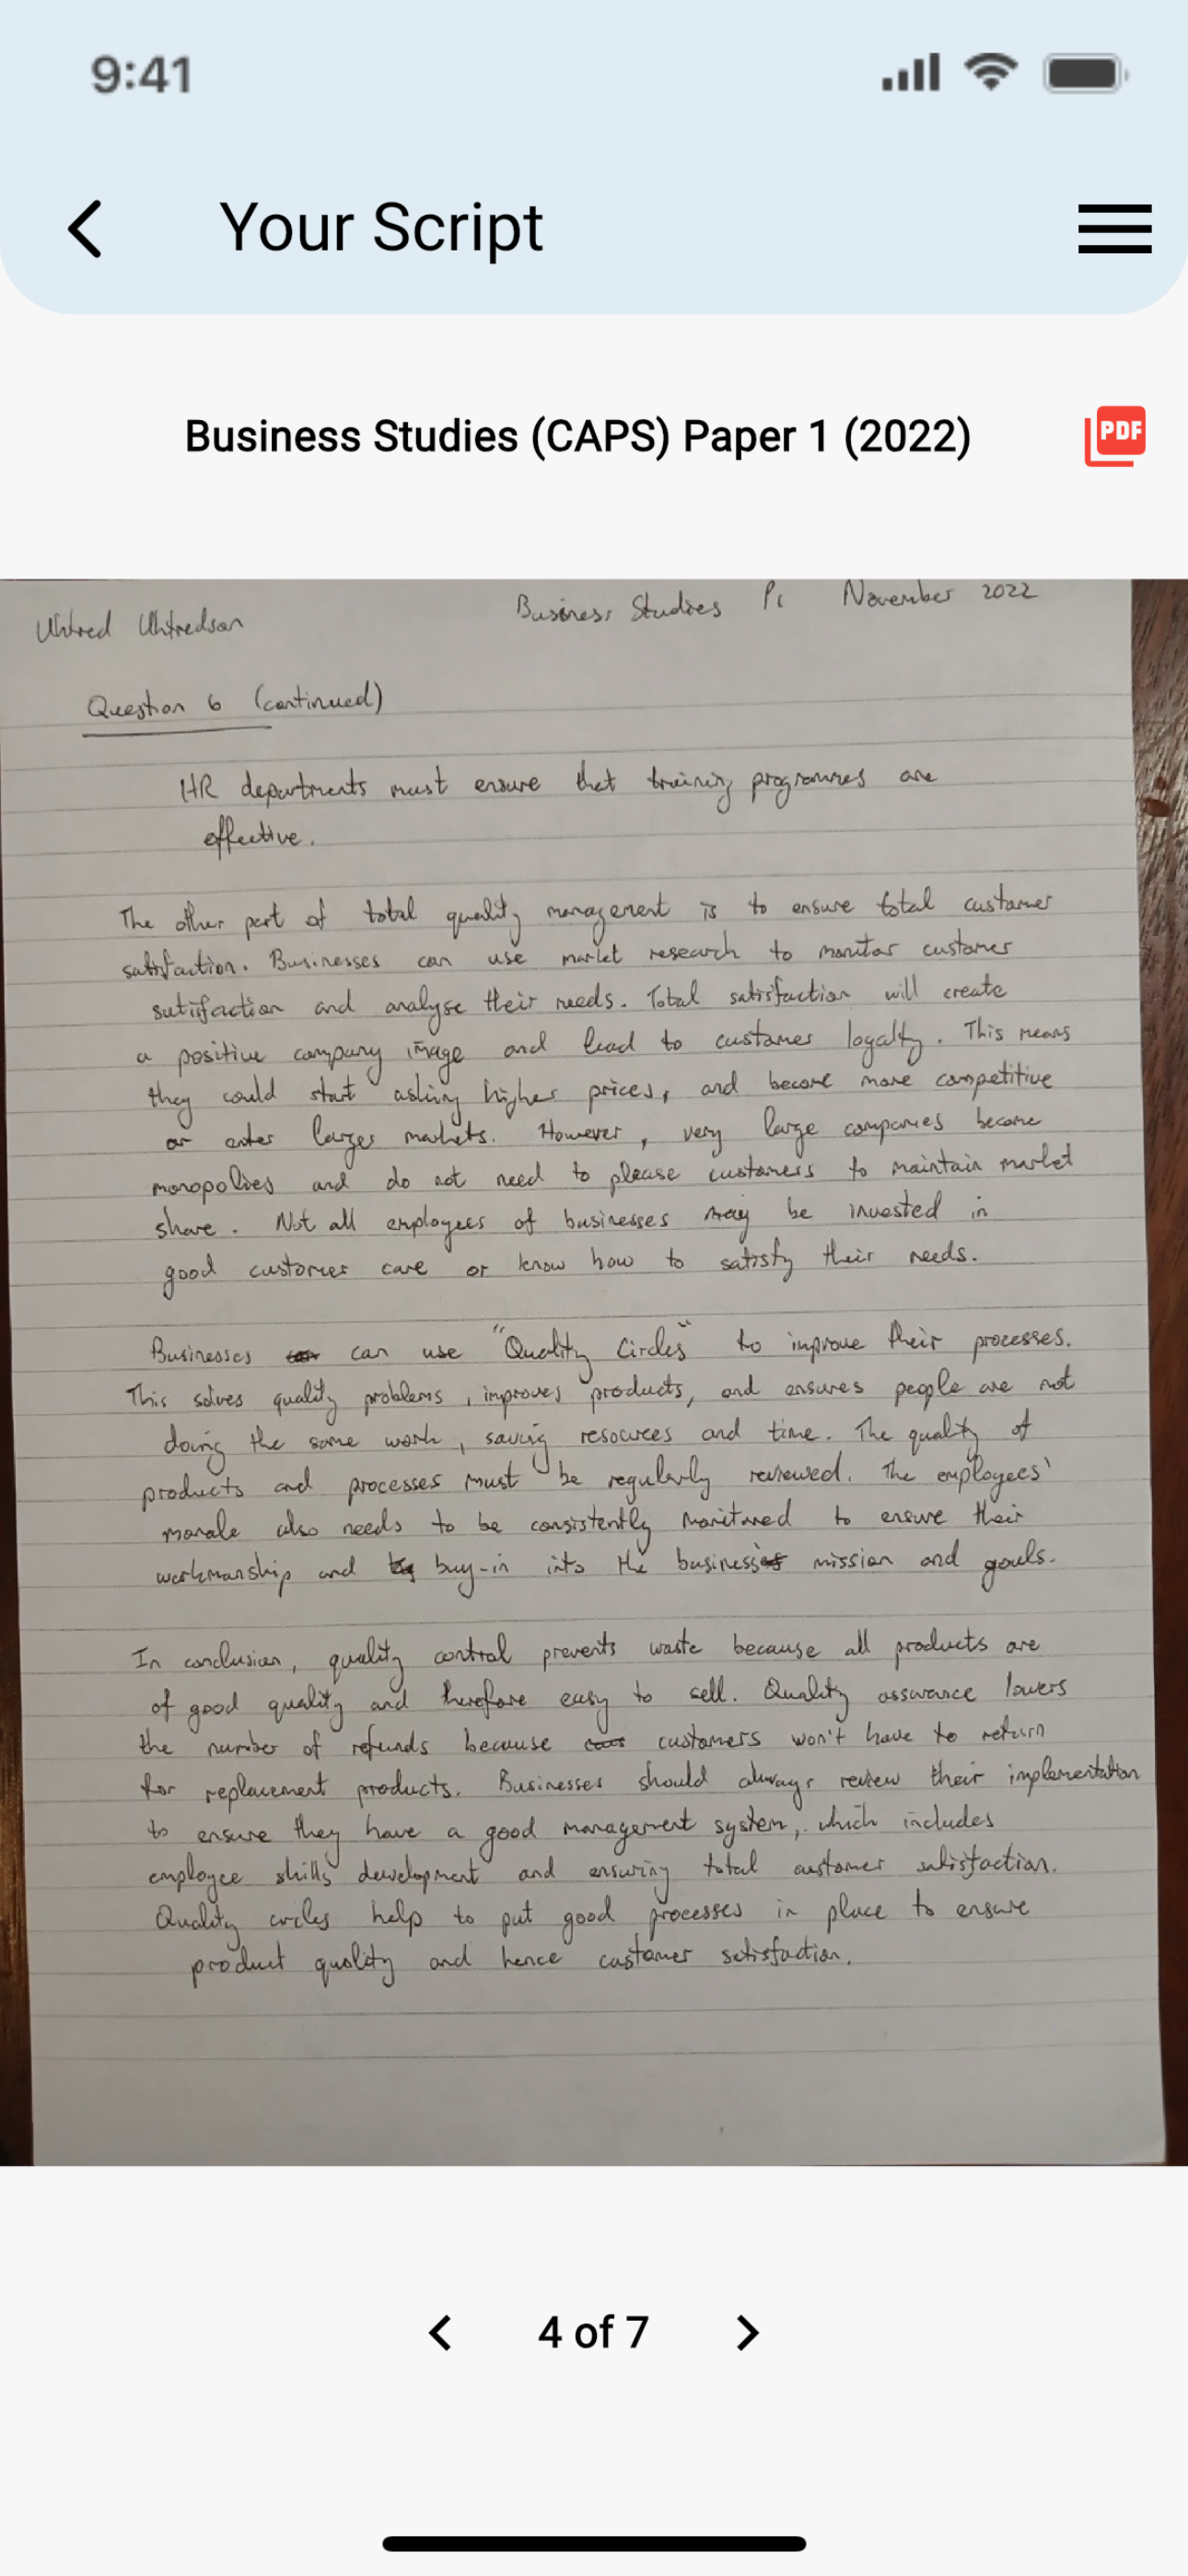 9:41
Your Script
Business Studies (CAPS) Paper 1 (2022)
PDF
Uhtred Uhtredson
Business Studies P1 November 2022
Question 6 (continued)
HR departments must ensure that training programmes are
effective.
The other part of total quality management is to ensure total customer
satisfaction. Businesses can use market research to monitor customer
satisfaction and analyse their needs. Total satisfaction will create
a positive company image and lead to customer loyalty. This means
they could start asking higher prices, and become more competitive
or enter larger markets. However, very large companies become
monopolies and do not need to please customers to maintain market
share. Not all employees of businesses may be invested in
good customer care or know how to satisfy their needs.
Businesses can use "Quality Circles" to improve their processes.
This solves quality problems, improves products, and ensures people are not
doing the same work, saving resources and time. The quality of
products and processes must be regularly reviewed. The employees'
morale also needs to be consistently monitored to ensure their
workmanship and buy-in into the business mission and goals.
In conclusion, quality control prevents waste because all products are
of good quality and therefore easy to sell. Quality assurance lowers
the number of refunds because customers won't have to return
for replacement products. Businesses should always review their implementation
to ensure they have a good management system, which includes
employee skills development and ensuring total customer satisfaction.
Quality circles help to put good processes in place to ensure
product quality and hence customer satisfaction.
4 of 7